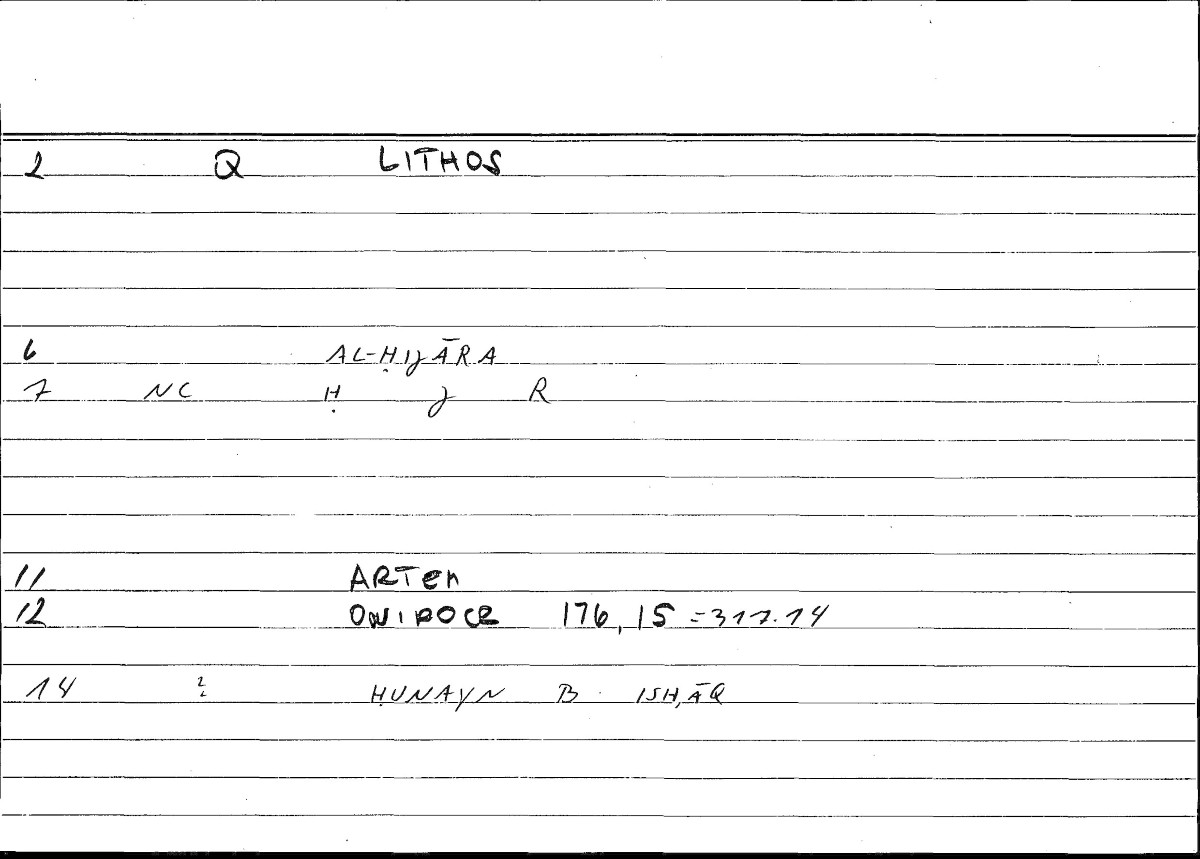 2 Q LITHOS
6 AL-ḤIJĀRA
7 NC Ḥ J R
11 ARTEM
12 ONIROCR 176, 15 = 317.14
14 2 ḤUNAYN B. ISḤĀQ